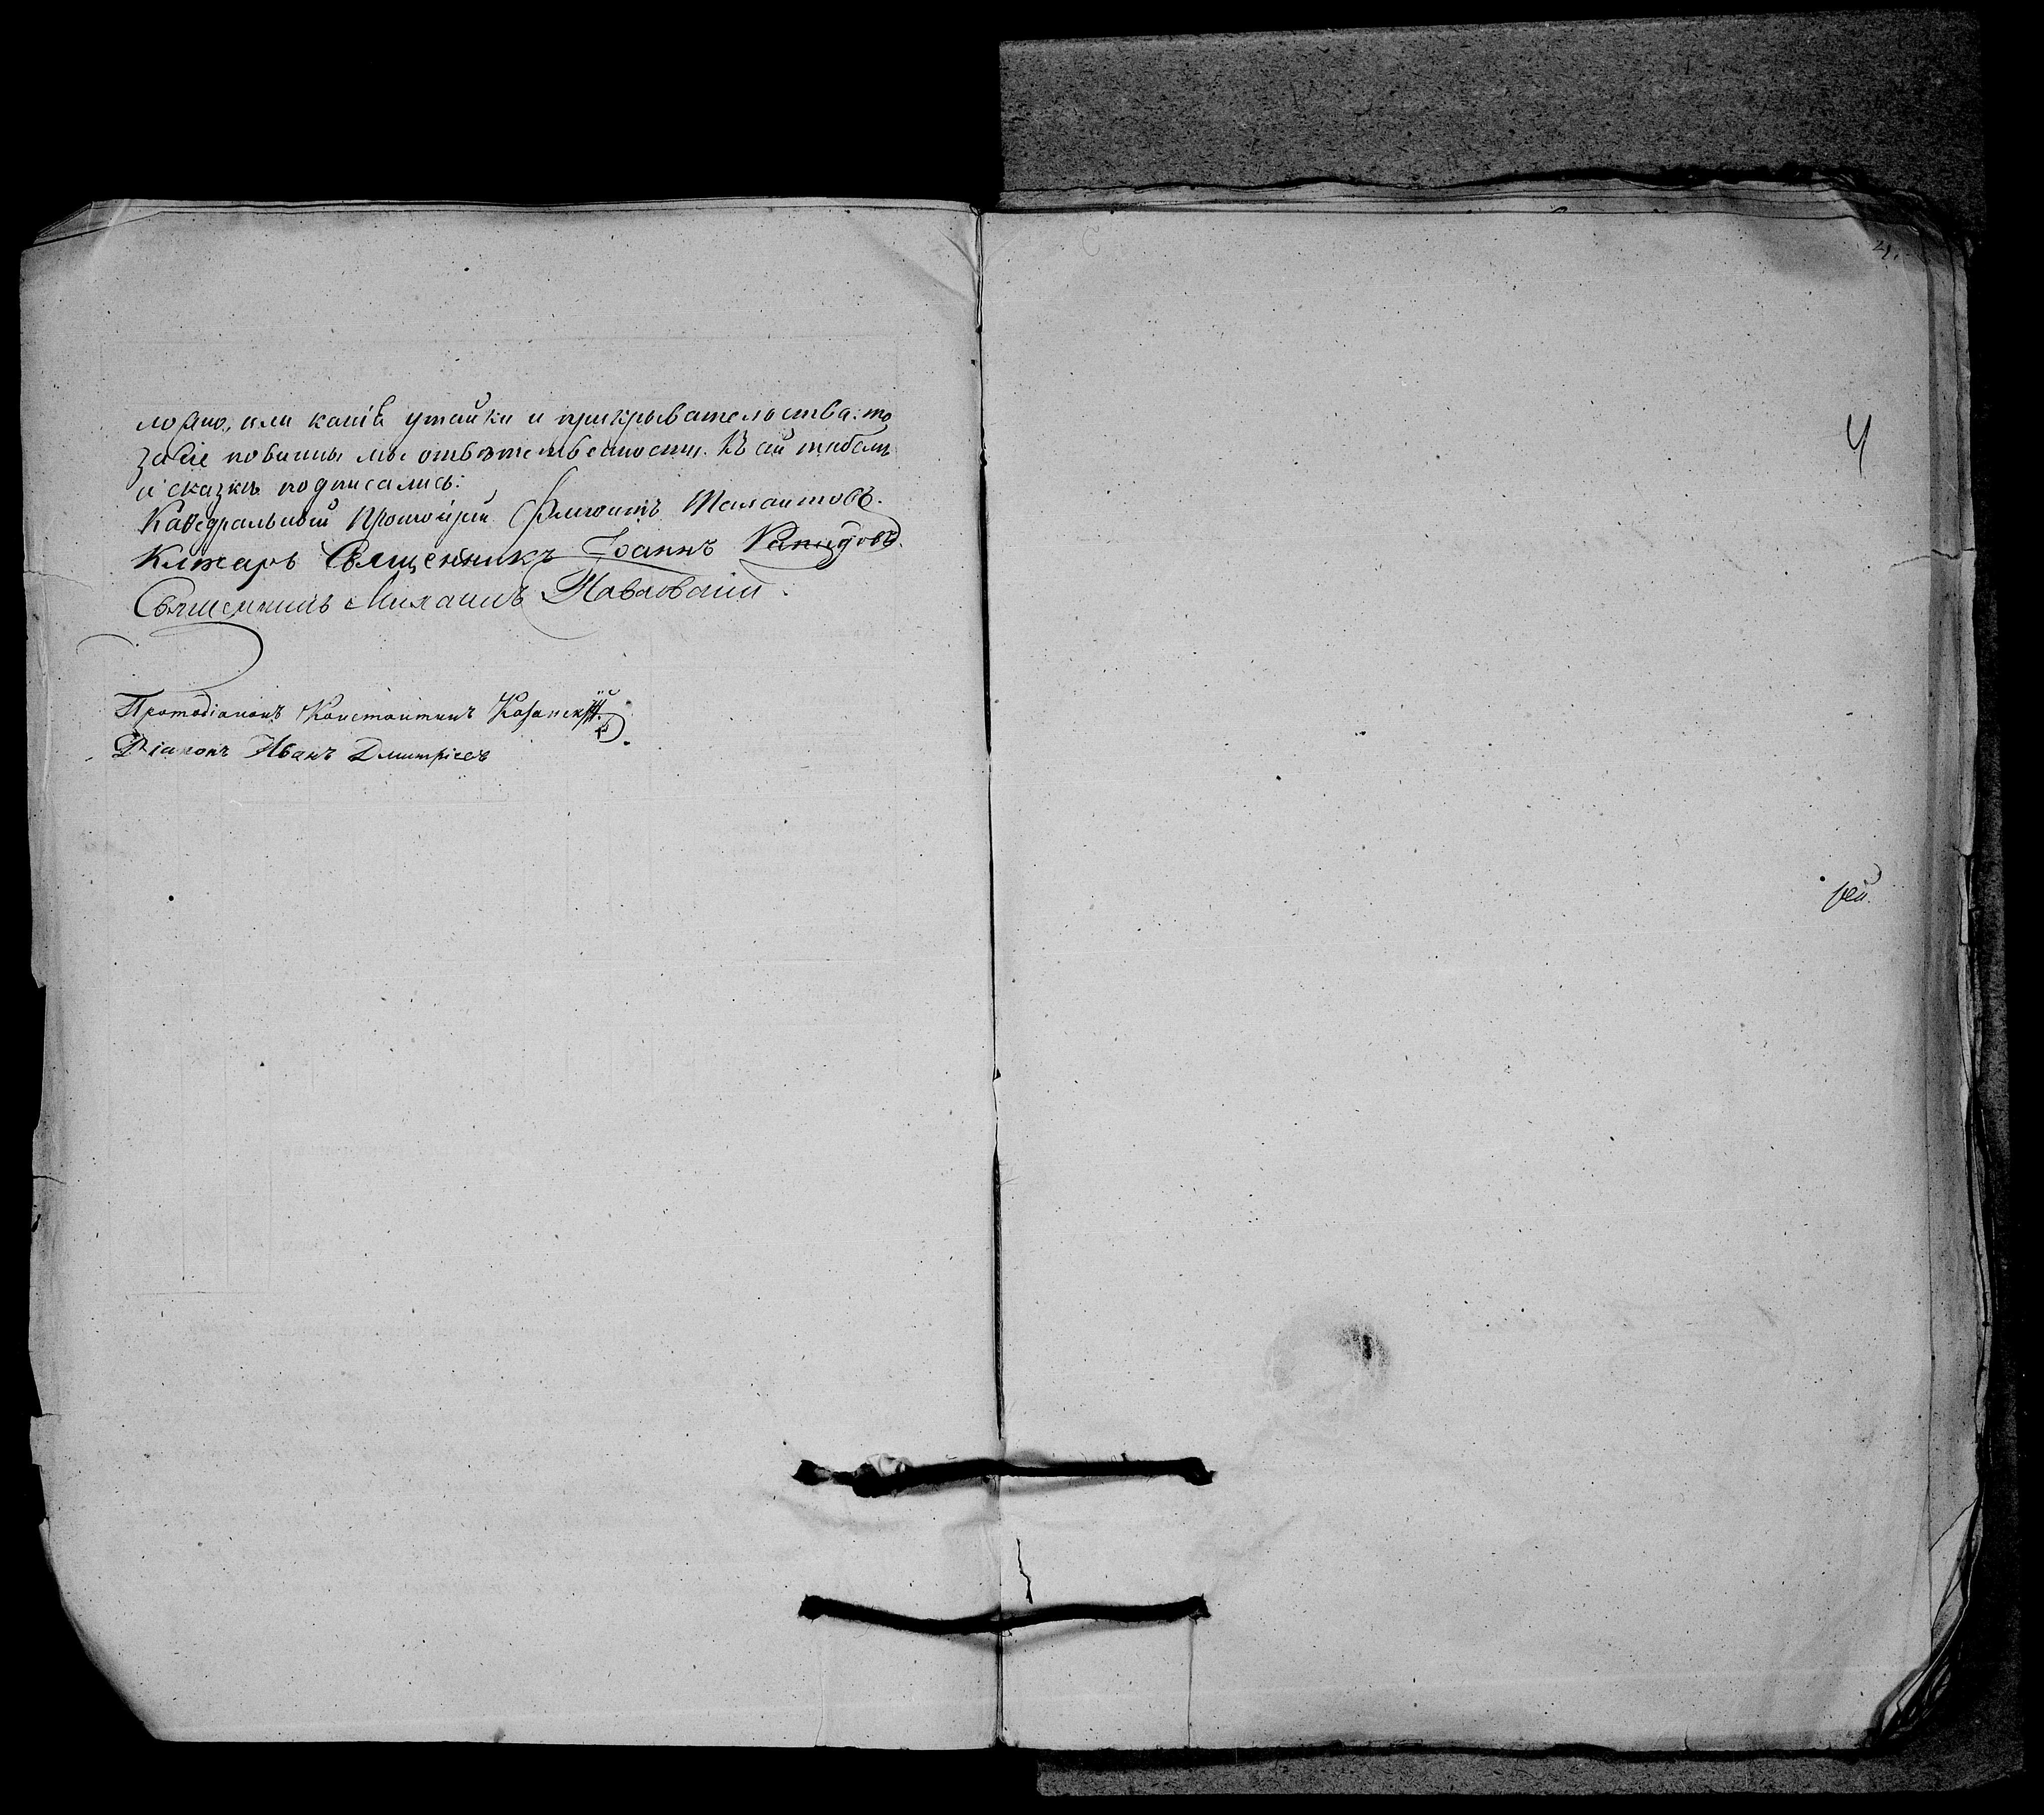 ложно, или какія утайки и прикрывательства: то
за сіе повинны мы отвѣтственности. Къ сей табели
и сказкѣ подписались:
Каѳедральный Протоіерей Талантовъ.
Ключарь Священникъ Іоаннъ
Священникъ Михаилъ
Протодіаконъ Константинъ Казанскій
Діаконъ Иванъ Дмитріевъ
4